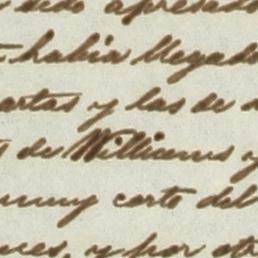 sido apresado
había llegado
cartas y las de
de Williams y
muy corto del
y por otr